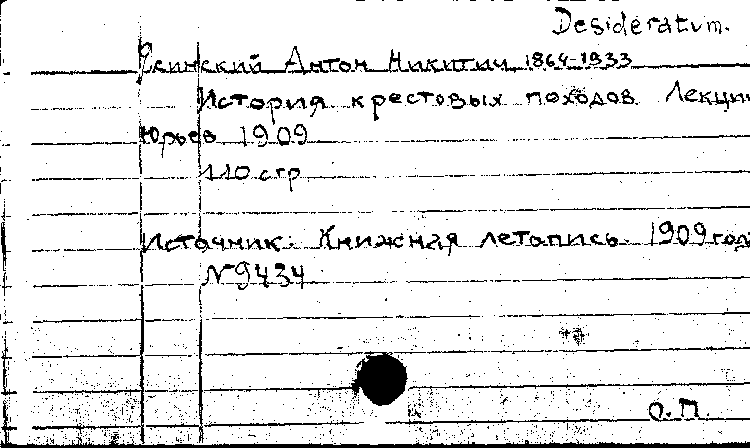 Desideratum.
Ясинский Антон Никитич 1864-1933
История крестовых походов. Лекции
Юрьев 1909
110 стр
Источник: Книжная летопись. 1909 год
№9434
О.П.